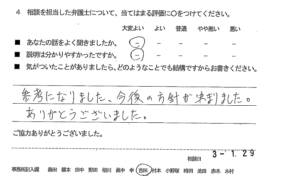 4 相談を担当した弁護士について、当てはまる評価に○をつけてください。
大変よい よい 普通 やや悪い 悪い
■ あなたの話をよく聞きましたか。
■ 説明は分かりやすかったですか。
■ 気がついたことがありましたら、どのようなことでも結構ですからお書きください。
参考になりました、今後の方針が決まりました。
ありがとうございました。
ご協力ありがとうございました。
相談日
3-1.29
事務局記入欄